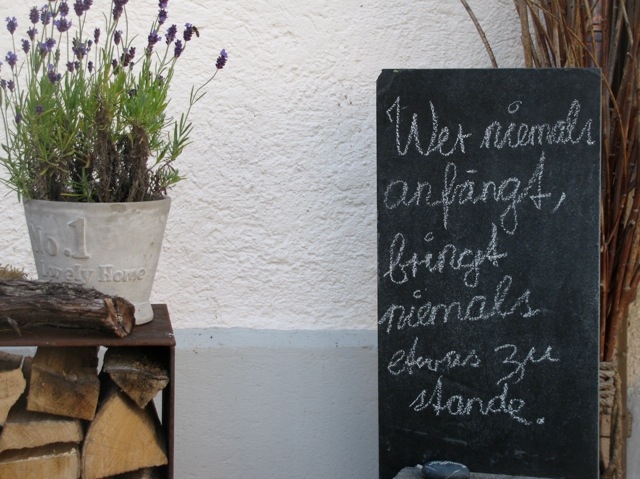 No.1
Lovely Home
Wer niemals
anfängt,
bringt
niemals
etwas zu
stande.